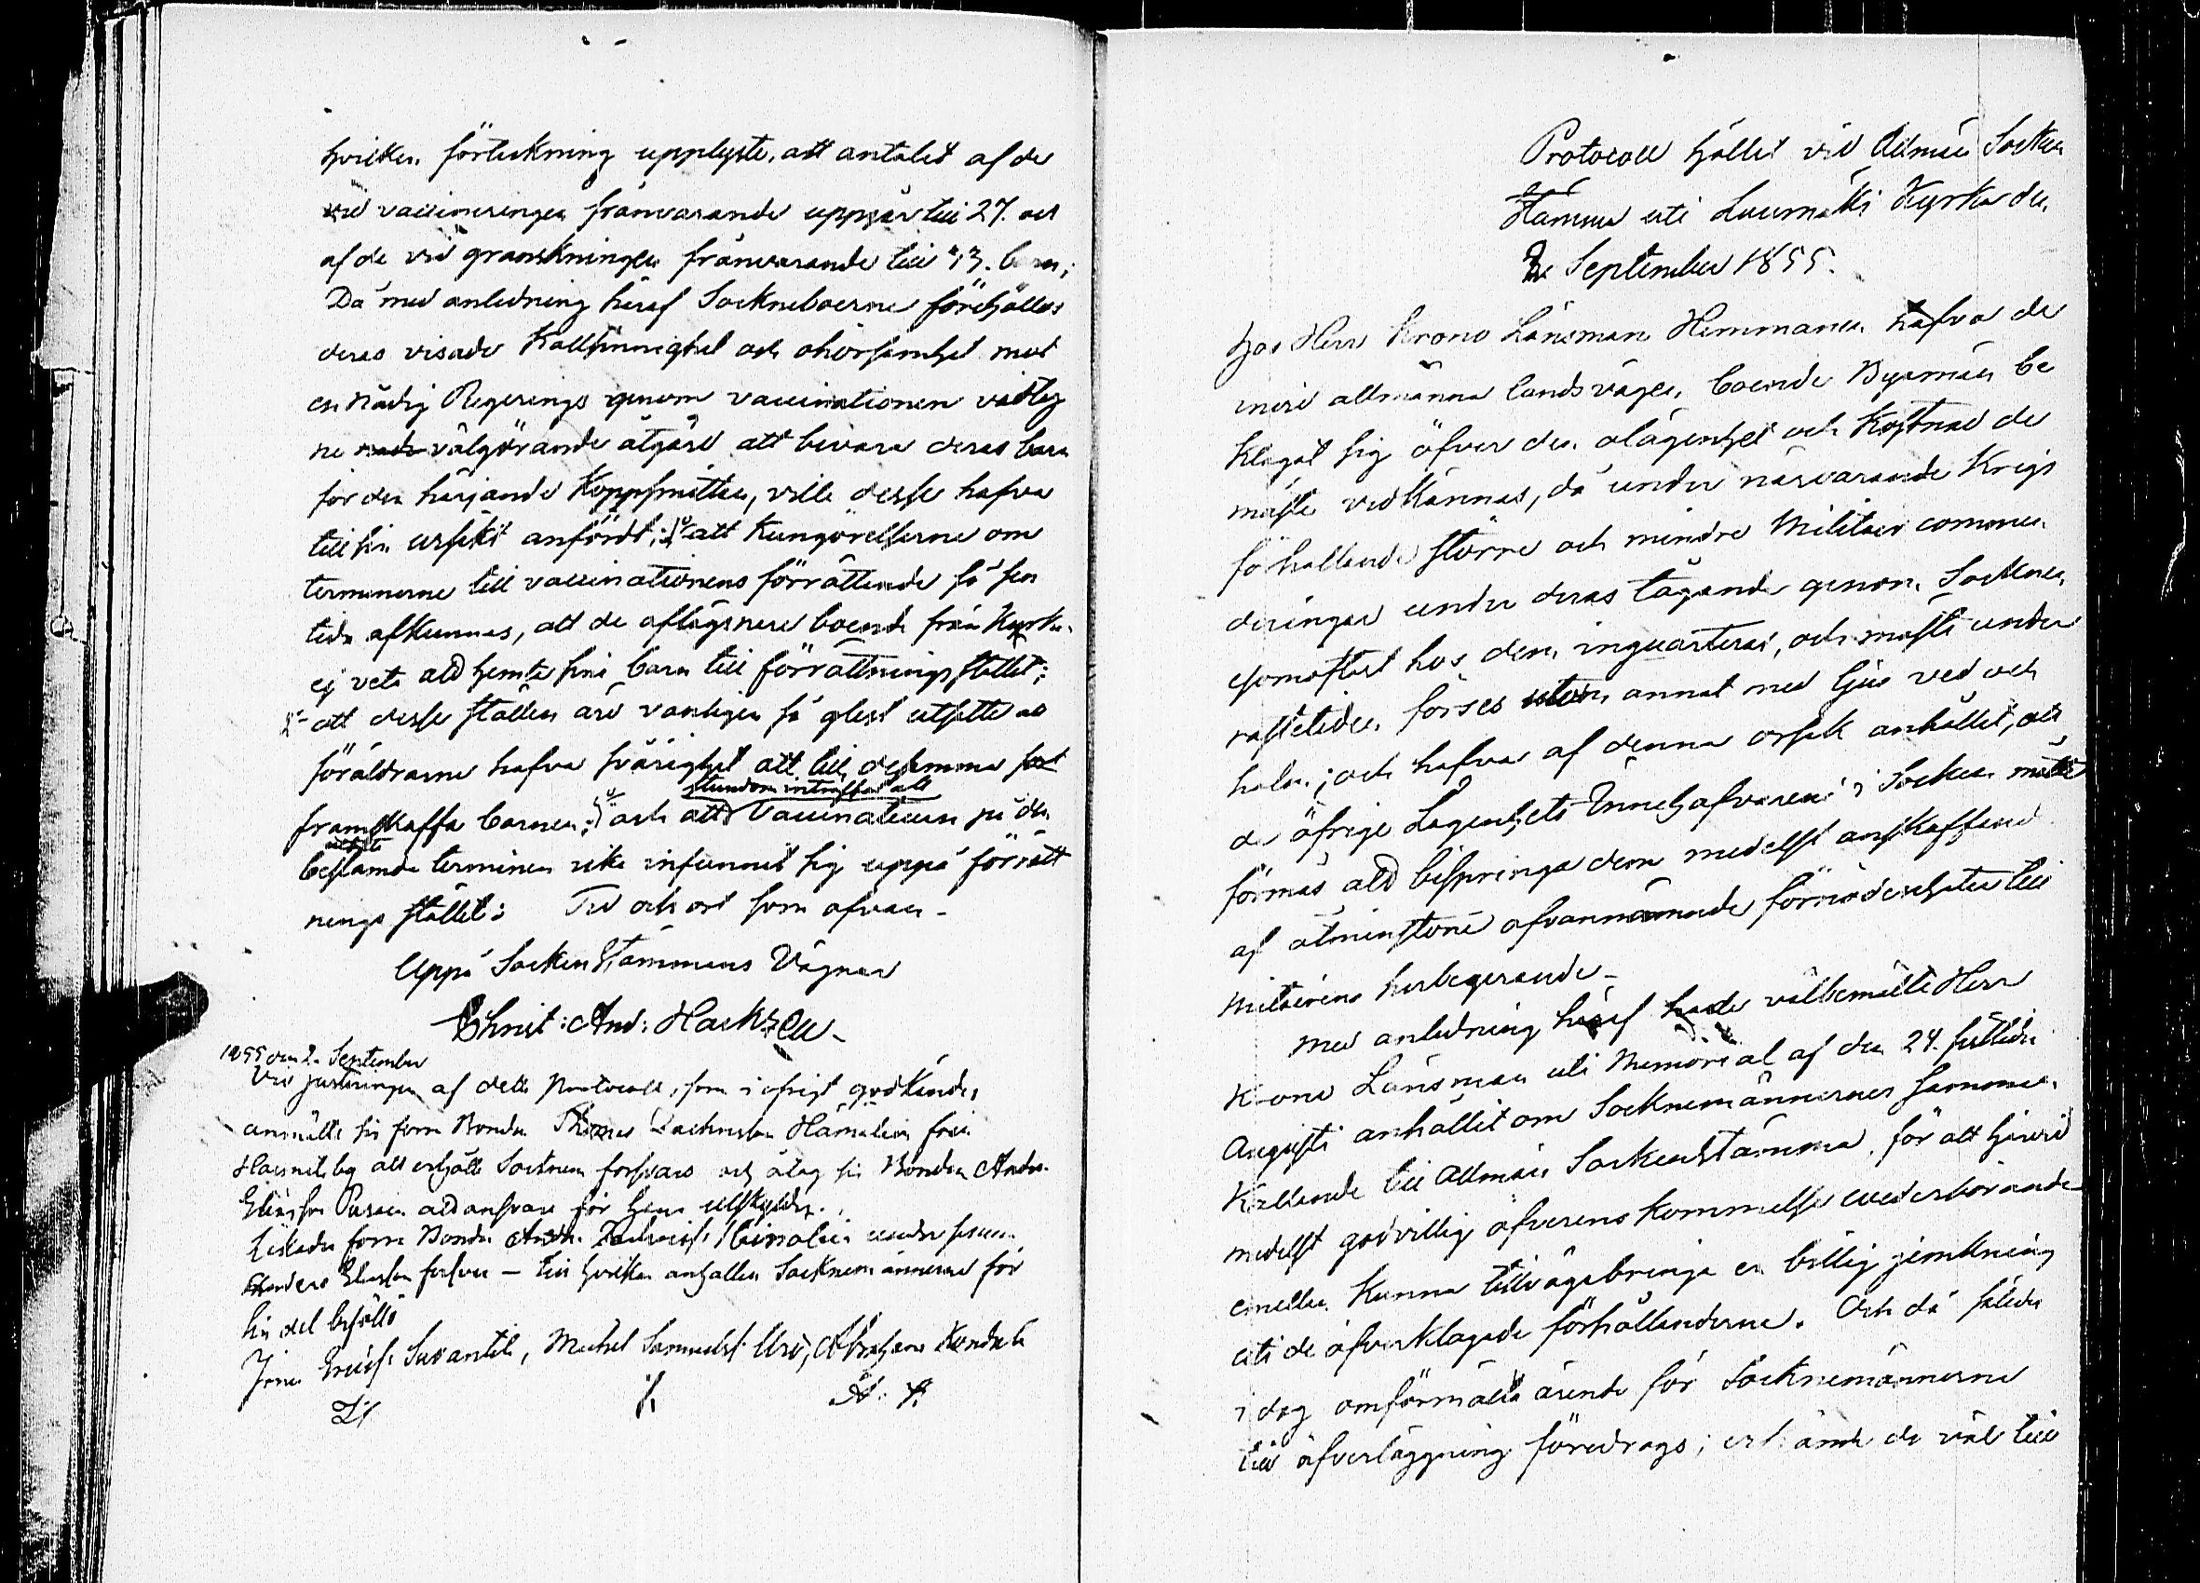 hvilken förtekning upplyste, att antalet af de
vid vaccineringen frånvarande uppgår till 27. och
af de vid granskningen frånvarande till 13. barn;
Då med anledning häraf Sockneboerne förehölles
deras visade Kallsinnighet och ohörsamhet mot
en Nådig Regerings genom vaccinationen vidtag
ne välgörande åtgärd att bevara deras barn
för den härjande Koppsmittan, ville desse hafva
till sin ursäkt anfördt; 1o att Kungörelserne om
terminerne till vaccinationens förrättande så sen
tida afkunnas, att de aflägsnare boende från Kyrkan
ej veta att hemta sina barn till förrättningsstället;
2o att desse ställen äro vanligen så glest utsatte att
föräldrarne hafva svårighet att till desamma
framskaffa barnen; 3o och att stundom inträffat att Vaccinateuren på den
utsatte bestämda terminen icke infunnit sig uppå förrätt
nings stället; Tid och ort som ofvan -
Uppå Sockenstämmans Vägnar
Christ: And: Hackzell
1855 den 2. September
Vid justeringen af detta Protocoll, som i öfrigt godkändes
anmälte sig förra Bonden Thomas Hämäläin från
att erhålla Socknens försvar och åtog sig Bonden Anders
Eliasson Pursian att ansvara för hans utskylder.
Likaledes förra Bonden Hämäläin under samme
Anders Eliasson försvar - till hvilken anhållan Socknemännerne för
sin del biföllo
Jöran Ericss. Suvantil, Michel Samuelss. Uro, Abraham Kondula
Protocoll hållet vid Allmän Socken
Stämma uti Luumäki Kyrka den
2 September 1855.
Hos Herr Krono Länsman Hemmanen hafva de
invid allmänna landsvägen boende Byamän be
klagat sig öfver den olägenhet och Kostnad de
måste vidkännas, då under närvarande Krigs
förhållande större och mindre Militair commen
deringar under deras tågande genom Socknen
esomoftast hos dem inquarteras, och måste under
rastetiden förses utom annat med ljus ved och
halm; och hafva af denna orsak anhållit, att
de öfrige Lägenhets Innehafvarena i Socken måtte
förmås att bispringa dem medelst anskaffand
af åtminstone ofvannämnde förnödenheter till
Militairens herbegerande -
Med anledning häraf hade välbemälte Herr
Krono Länsman uti Memorial af den 24. sistledne
Augusti anhållit om Socknemännernes samman
Kallande till Allmän Sockenstämma, för att härvid
medelst godvillig öfverenskommelse vederbörande
emellan Kunna tillvägabringa en billig jemkning
uti de öfverklagade förhållanderne. Och då således
i dag omförmälte ärende för Socknemännerne
till öfverläggning föredrogs; erkände de väl till